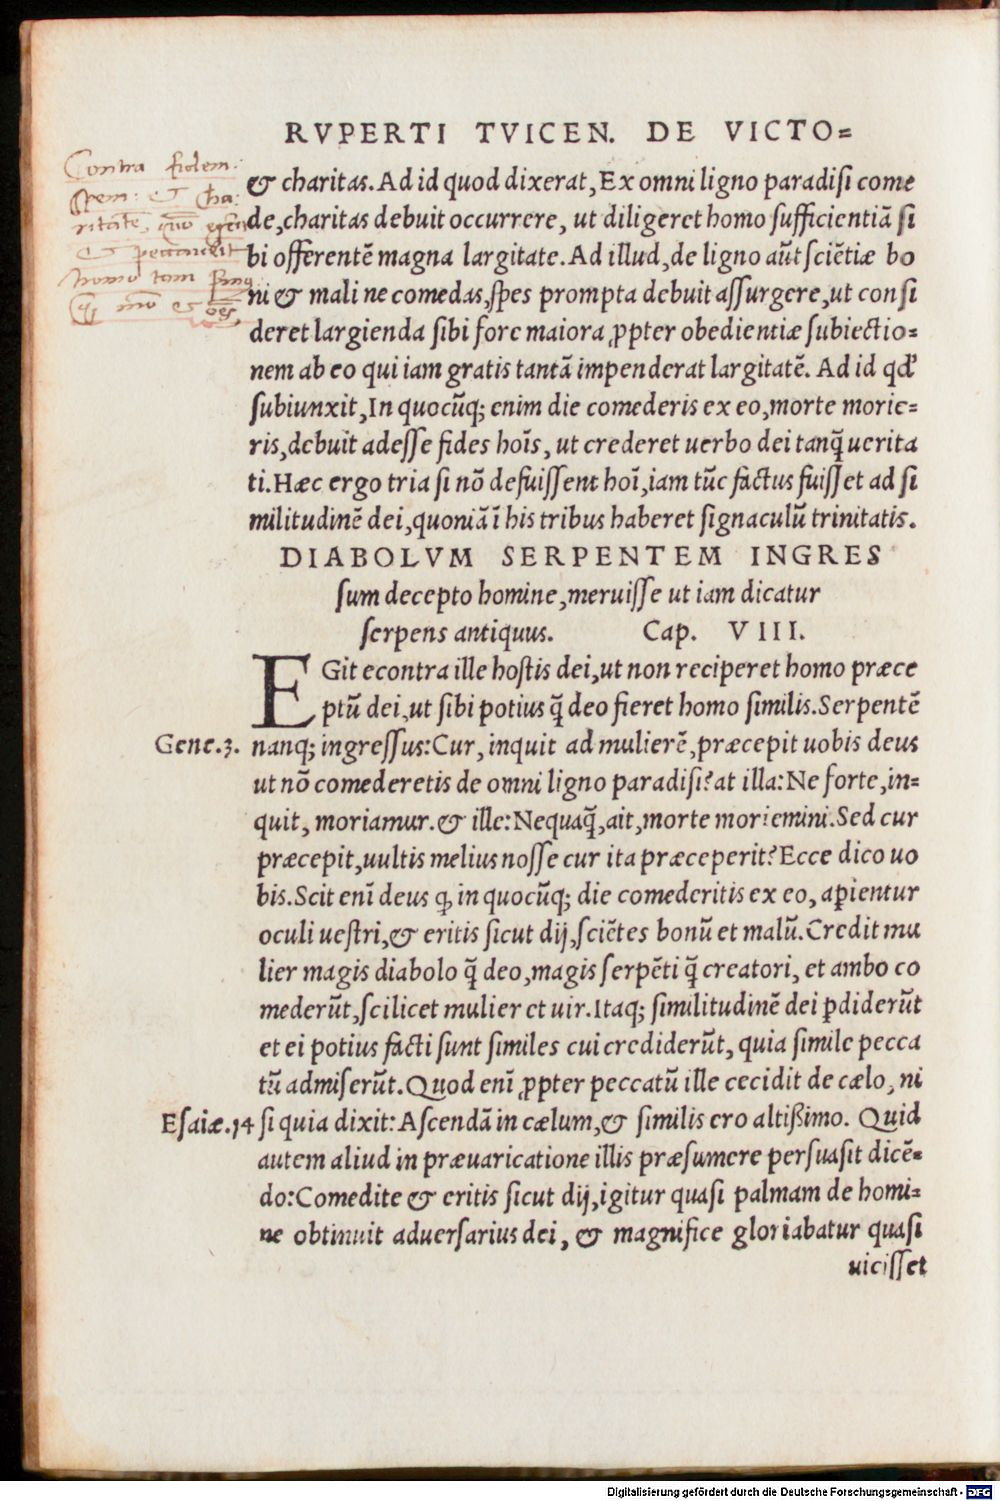 RVPERTI TVICEN. DE VICTO=
Contra fidem:
Spem: & Cha:
ritatē,
&
homo tam
& charitas. Ad id quod dixerat, Ex omni ligno paradisi come
de, charitas debuit occurrere, ut diligeret homo sufficientiā si
bi offerentē magna largitate. Ad illud, de ligno aūt sciētiæ bo
ni & mali ne comedas, spes prompta debuit assurgere, ut consi
deret largienda sibi fore maiora ꝓpter obedientiæ subiectio=
nem ab eo qui iam gratis tantā impenderat largitatē. Ad id qd'
subiunxit, In quocūq; enim die comederis ex eo, morte morie=
ris, debuit adesse fides hoīs, ut crederet uerbo dei tanq̄ uerita
ti. Hæc ergo tria si nō defuissent hoī, iam tūc factus fuisset ad si
militudinē dei, quoniā ī his tribus haberet signaculū trinitatis.
DIABOLVM SERPENTEM INGRES
sum decepto homine, meruisse ut iam dicatur
serpens antiquus. Cap. VIII.
EGit econtra ille hostis dei, ut non reciperet homo præce
ptū dei, ut sibi potius q̄ deo fieret homo similis. Serpentē
Gene.3. nanq; ingressus: Cur, inquit ad mulierē, præcepit uobis deus
ut nō comederetis de omni ligno paradisi? at illa: Ne forte, in=
quit, moriamur. & ille: Nequaq̄, ait, morte moriemini. Sed cur
præcepit, uultis melius nosse cur ita præceperit? Ecce dico uo
bis. Scit enī deus ꝙ in quocūq; die comederitis ex eo, apientur
oculi uestri, & eritis sicut dij, sciētes bonū et malū. Credit mu
lier magis diabolo q̄ deo, magis serpēti q̄ creatori, et ambo co
mederūt, scilicet mulier et uir. Itaq; similitudinē dei ꝑdiderūt
et ei potius facti sunt similes cui crediderūt, quia simile pecca
tū admiserūt. Quod enī ꝓpter peccatū ille cecidit de cælo, ni
Esaiæ.14 si quia dixit: Ascendā in cælum, & similis ero altißimo. Quid
autem aliud in præuaricatione illis præsumere persuasit dicē=
do: Comedite & eritis sicut dij, igitur quasi palmam de homi=
ne obtinuit aduersarius dei, & magnifice gloriabatur quasi
uicisset
Digitalisierung gefördert durch die Deutsche Forschungsgemeinschaft - DFG